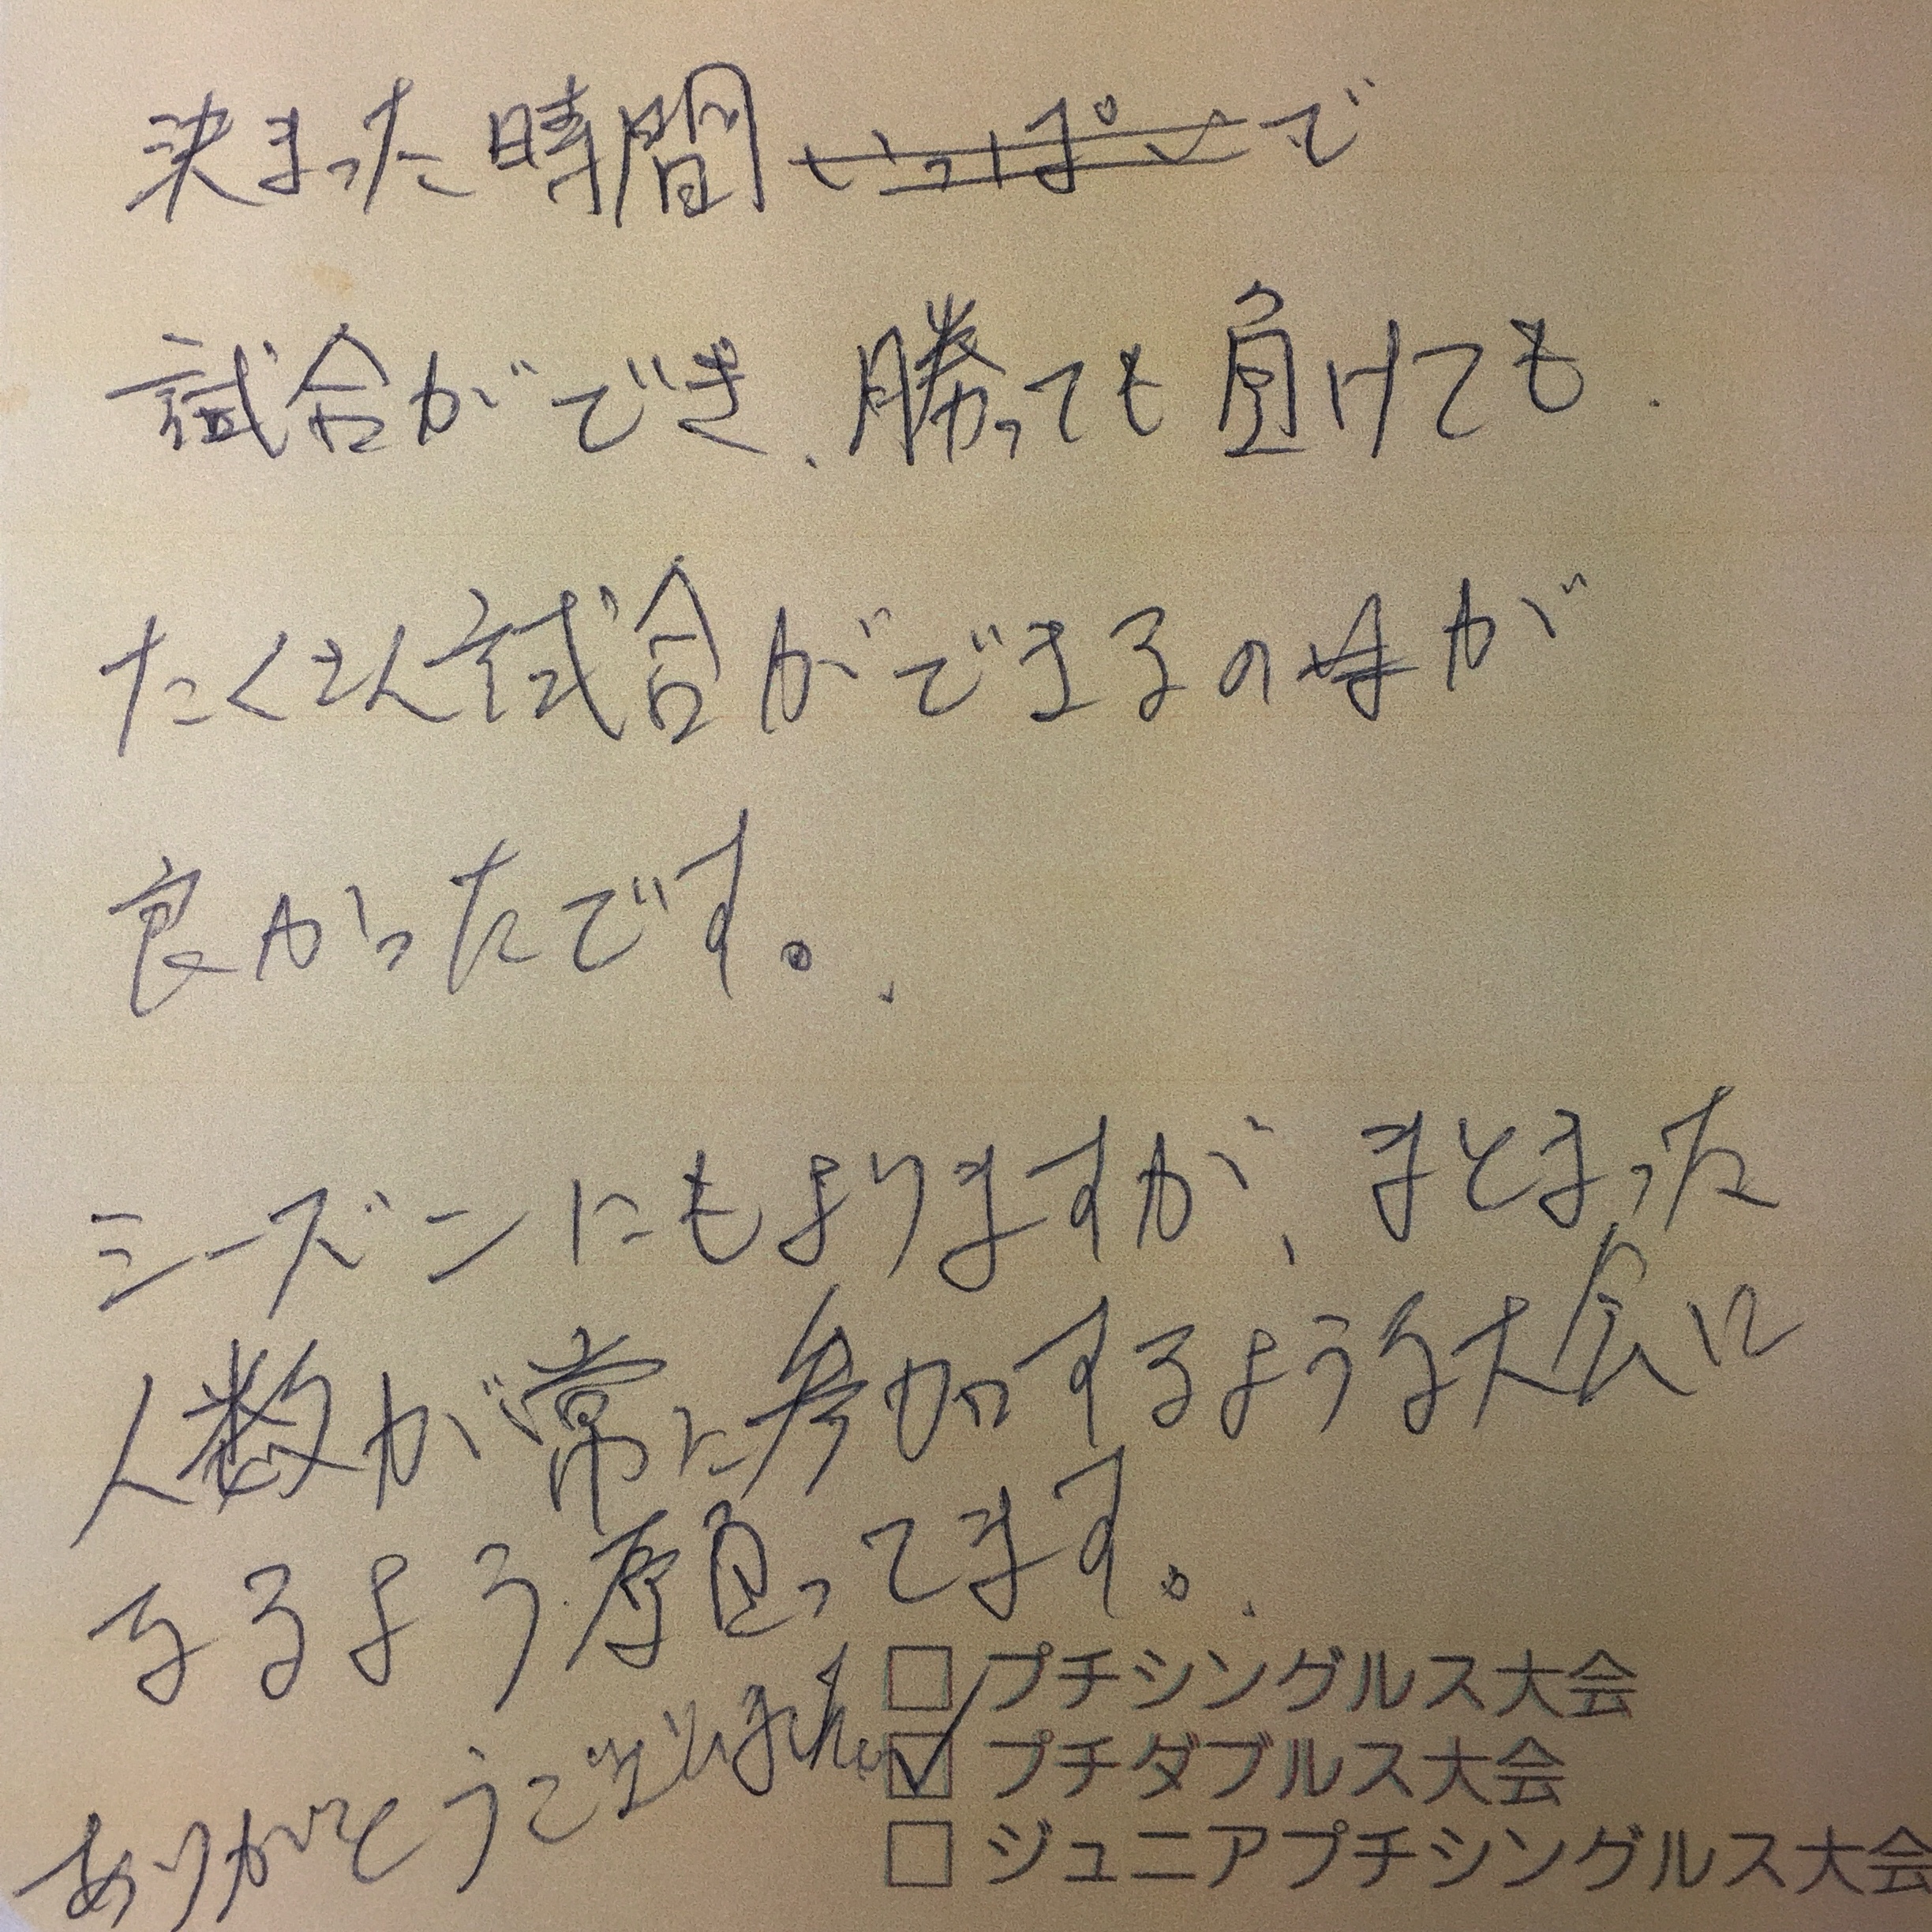 決まった時間で
試合ができ、勝っても負けても、
たくさん試合ができるのが
良かったです。
シーズンにもよりますが、まとまった
人数が常に参加するような大会に
なるよう願ってます。
ありがとうございました。
□プチシングルス大会
☑プチダブルス大会
□ジュニアプチシングルス大会